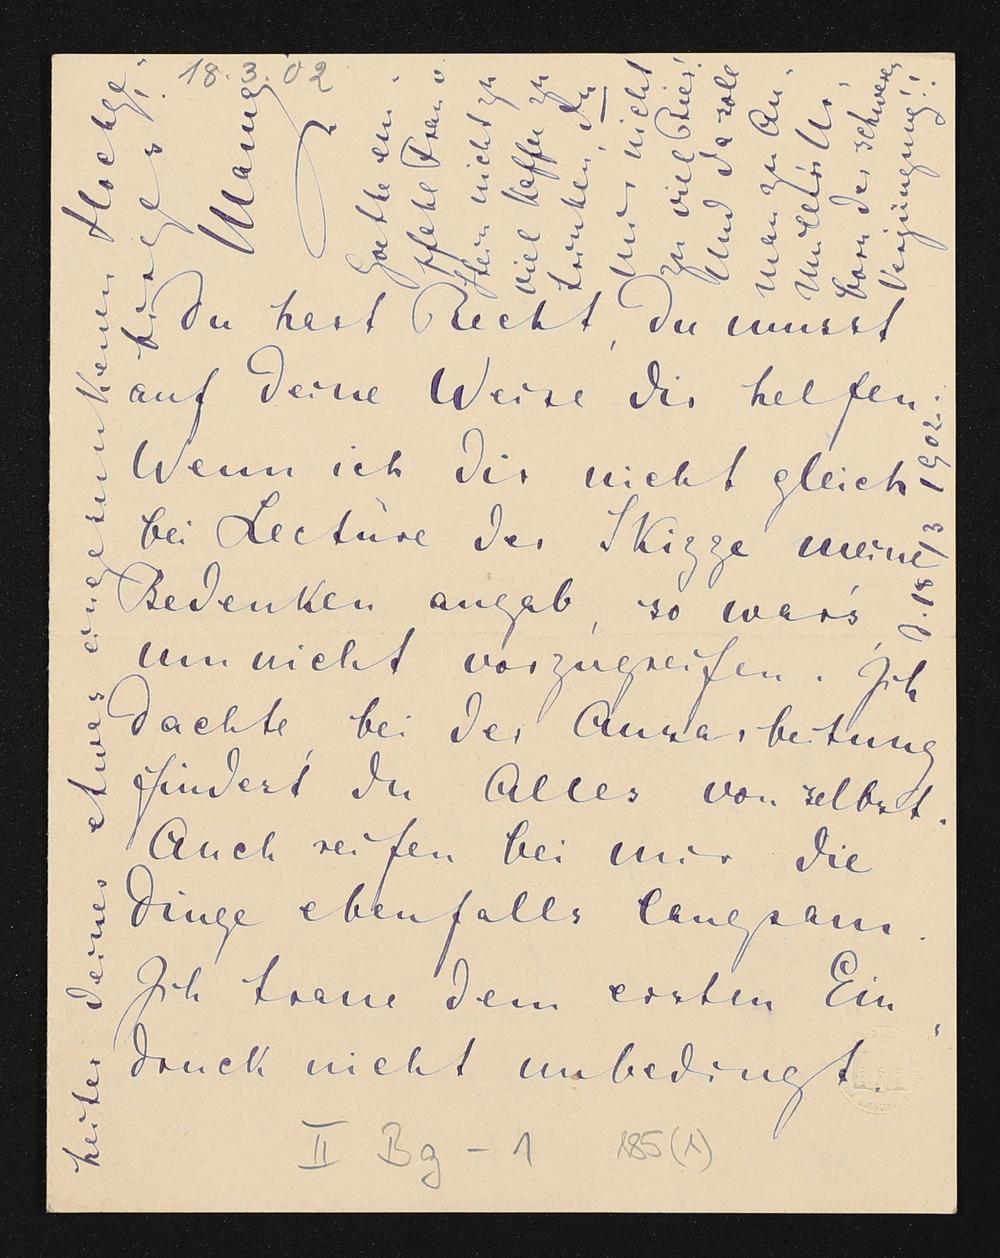 18.3.02
Du hast Recht, du musst
auf deine Weise dir helfen.
Wenn ich dir nicht gleich
bei Lectüre der Skizze meine
Bedenken angab, so war's,
um nicht vorzugreifen. Ich
dachte, bei der Ausarbeitung
findest du Alles von selbst.
Auch reifen bei mir die
Dinge ebenfalls langsam.
Ich traue dem ersten Ein
druck nicht unbedingt.
heiter deines etwas eingesunkenen Hochge-
birges!
Mama
Goethe em-
pfehle Frau v.
Stein nicht zu
viel Kaffee zu
trinken, du
nur nicht
zu viel Bier!
Und da solle
man zu An-
Ur-
born der schweren
Verjüngung!!
d. 18/3 1902.
II Bg - 1
185(1)